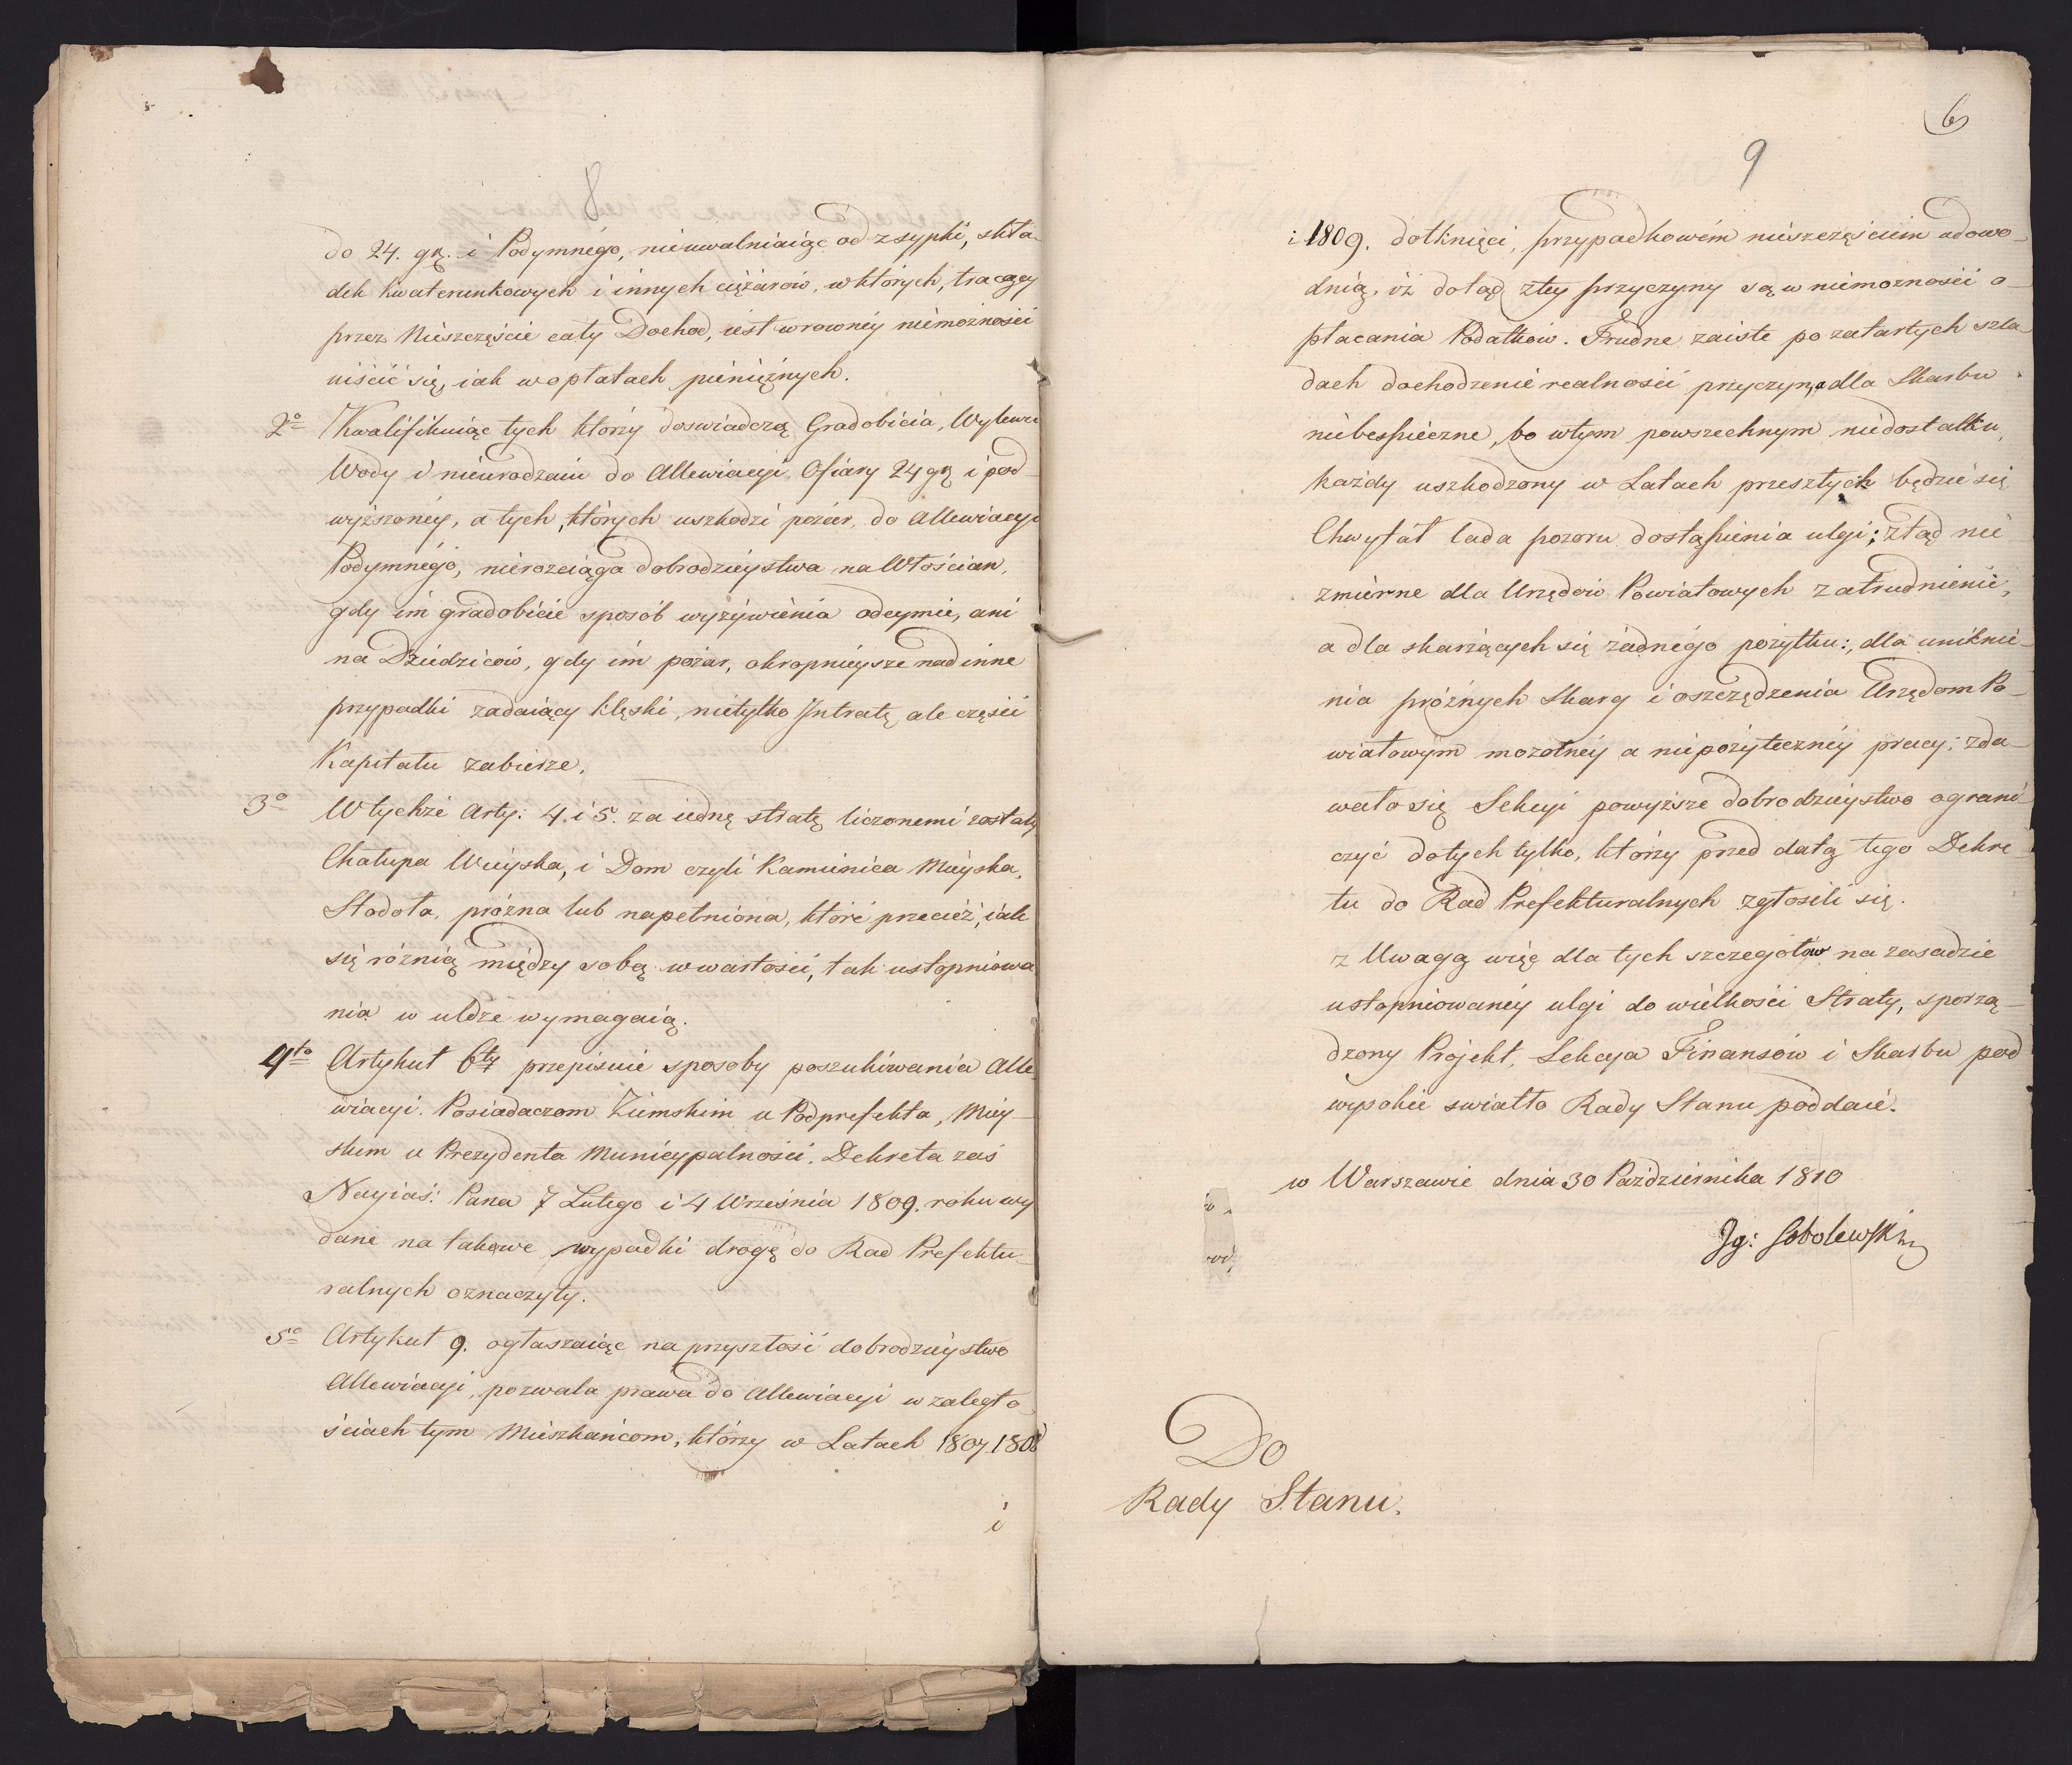 8
do 24. gr. i Podymnégo, nieuwalniaiąc od zsypki, skła-
dek kwaterunkowych i innych ciężarów, wktórych, tracący
przez Nieszczęście cały Dochod, iest wrowney niemożności
uiścić się, iak wopłatach pieniężnych.
2o Kwalifikuiąc tych którzy doswiadczą Gradobicia, Wylewu
Wody i nieurodzaiu do Allewiacyi Ofiary 24 gr i pod-
wyższoney, a tych, których uszkodzi pożar, do Allewiacyi
Podymnégo, nierozciąga dobrodzieystwa na Włościan,
gdy im gradobicie sposób wyżywienia odeymie, ani
na Dziedziców, gdy im pożar, okropnieysze nad inne
przypadki zadaiący klęski, nietylko Jntratę, ale części
Kapitału zabierze.
3o Wtychże Arty: 4. i 5. za iednę stratę liczonemi zostały
Chałupa Wieyska, i Dom czyli Kamienica Mieyska,
Stodoła, próżna lub napełniona, które przecież, iak
się różnią między sobą wwartości, tak ustopniowa
nia w uldze wymagaią.
4to Artykuł 6ty przepisuie sposoby poszukiwania Alle-
wiacyi. Posiadaczom Ziemskim u Podprefekta, Miey-
skim u Prezydenta Municypalności. Dekreta zaś
Nayiaś: Pana 7 Lutego i 4 Września 1809. roku wy
dane na takowe wypadki drogę do Rad Prefektu-
ralnych oznaczyły.
5o Artykuł 9. ogłaszaiąc na przyszłość dobrodzieystwo
Allewiacyi, pozwala prawa do Allewiacyi w zaległo
ściach tym Mieszkańcom, którzy w Latach 1807 1808
i
6
9
i 1809. dotknięci, przypadkowém nieszczęściem udowo-
dnią, iż dotąd ztey przyczyny są w niemożności o-
płacania Podatków. Trudne zaiste po zatartych szla-
dach dochodzenie realności przyczyn, a dla Skarbu
niebespieczne, bo wtym powszechnym niedostatku,
każdy uszkodzony w Latach przeszłych będzie się
Chwytał lada pozoru dostąpienia ulgi; ztąd nie
zmierne dla Urzędów Powiatowych zatrudnienie,
a dla skarżących się żadnégo pożytku:, dla uniknie-
nia próżnych Skarg i oszczędzenia Urzędom Po-
wiatowym mozolney a niepożyteczney pracy; zda-
wało się Sekcyi powyższe dobrodzieystwo ograni-
czyć dotych tylko, którzy przed datą tego Dekre-
tu do Rad Prefekturalnych zgłosili się.
z Uwagą więc dla tych szczegółów na zasadzie
ustopniowaney ulgi do wielkości Straty, sporzą-
dzony Projekt, Sekcya Finansów i Skarbu pod
wysokie swiatło Rady Stanu poddaie.
w Warszawie dnia 30 Października 1810
Jg: Sobolewski
Do
Rady Stanu.